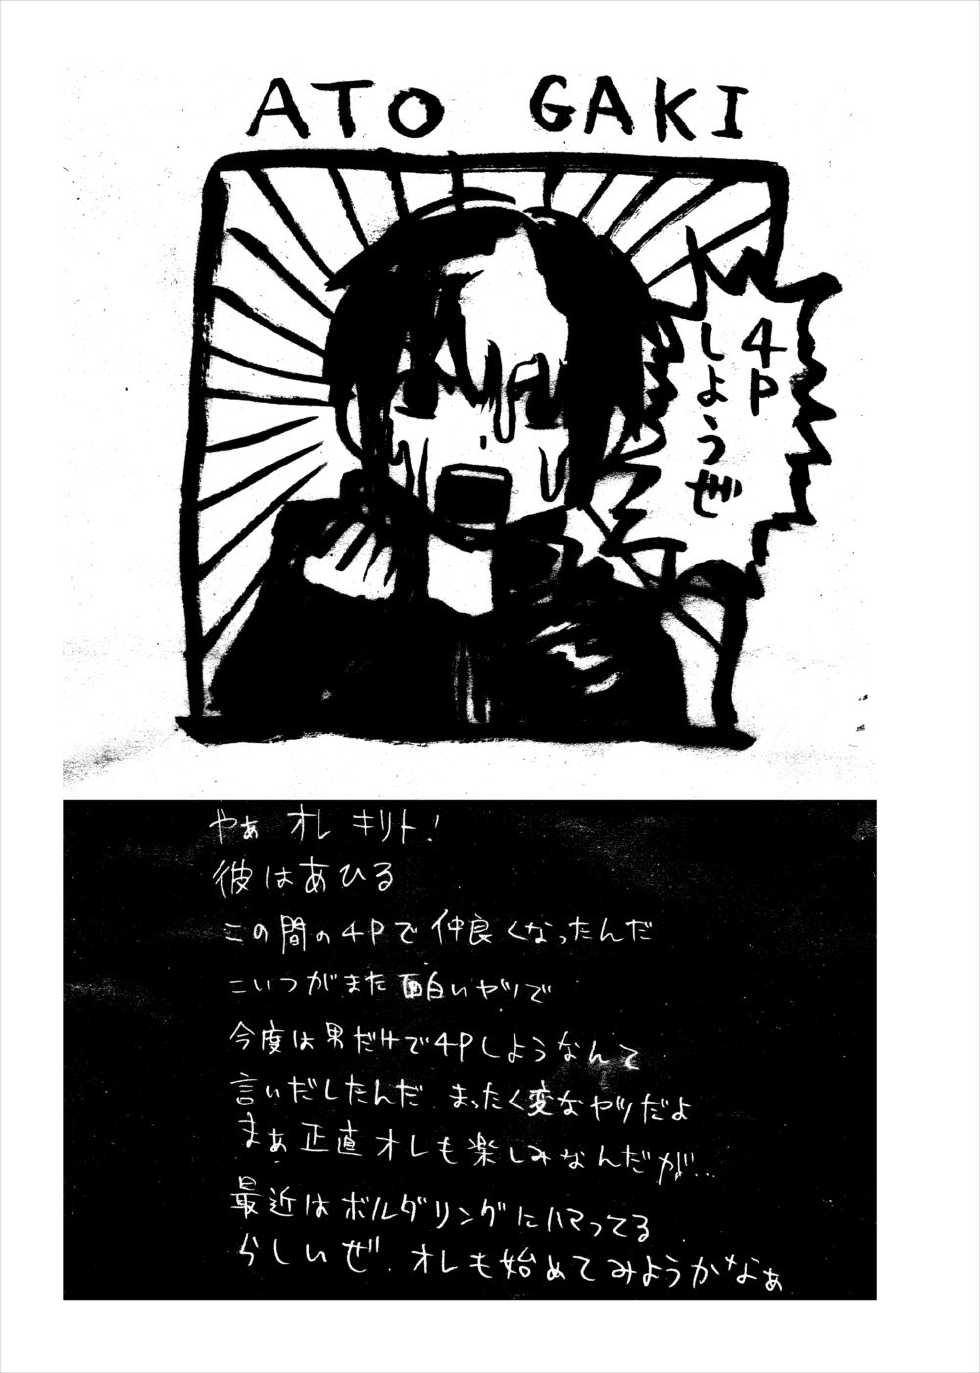 ATO GAKI
4P
しようぜ
やぁ オレ キリト!
彼はあひる
この間の4Pで仲良くなったんだ
こいつがまた面白いヤツで
今度は男だけで4Pしようなんて
言いだしたんだ まったく変なヤツだよ
まぁ正直オレも楽しみなんだが...
最近はボルダリングにハマってる
らしいぜ. オレも始めてみようかなぁ